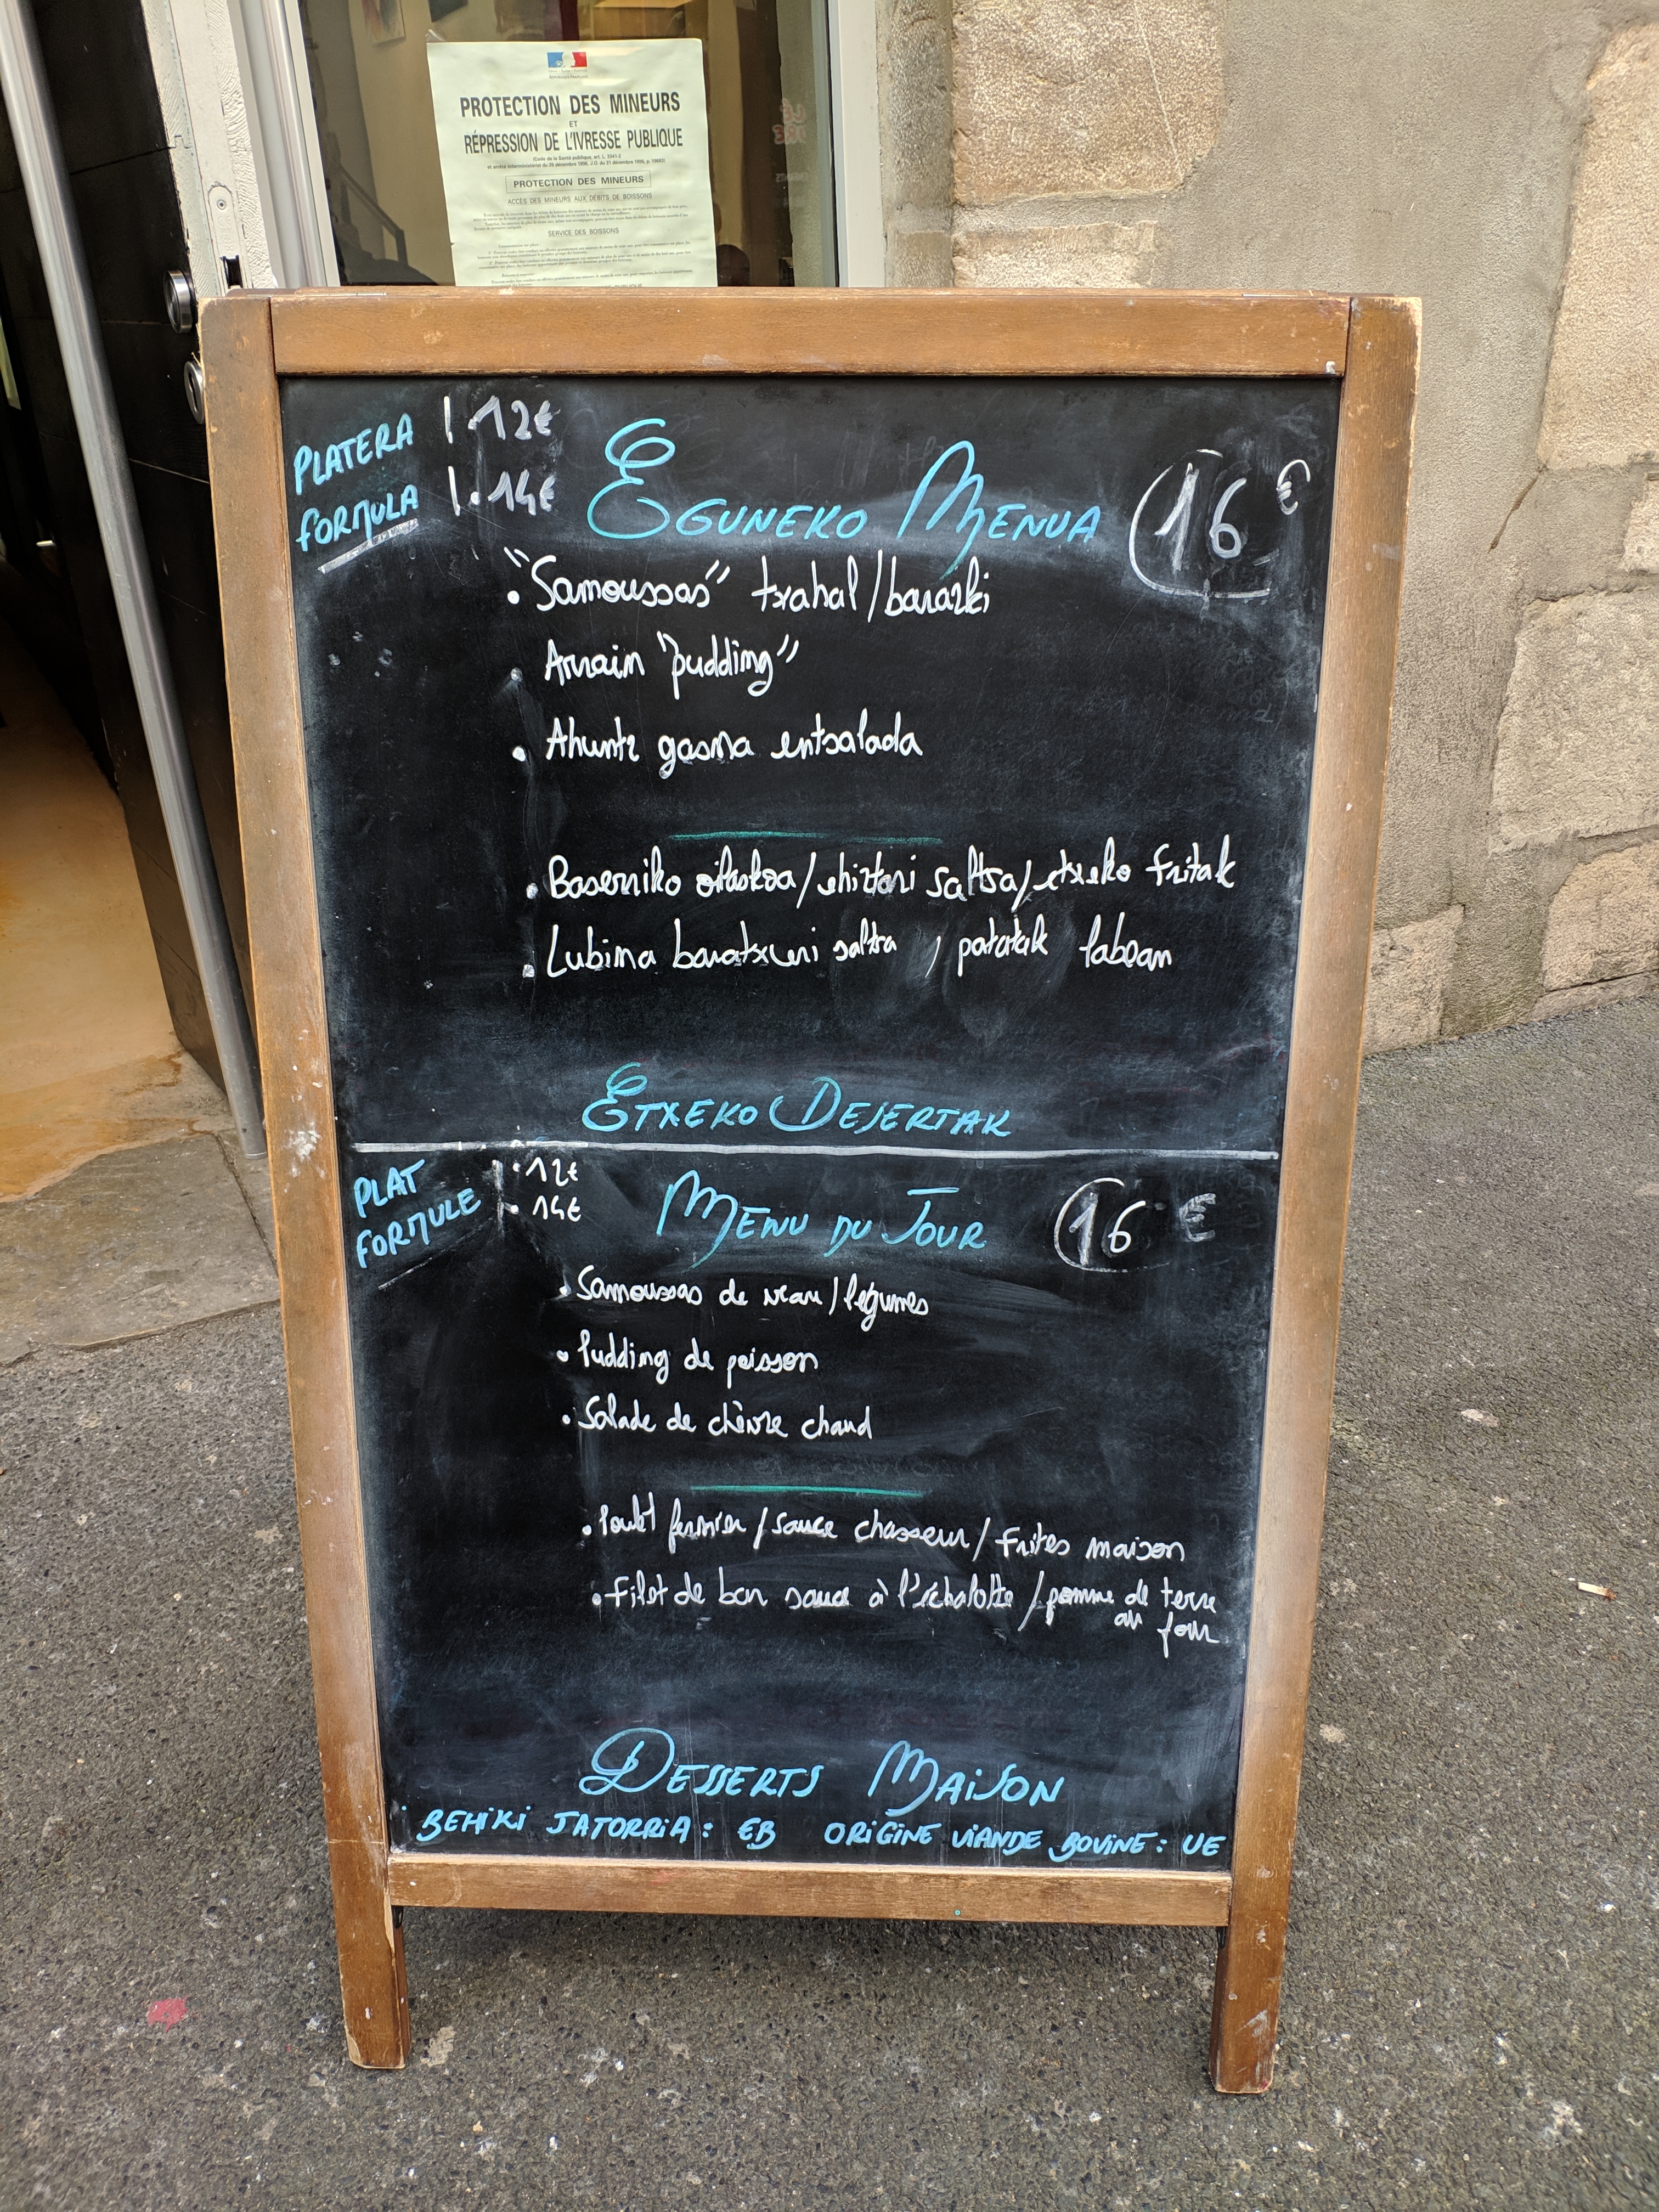 PROTECTION DES MINEURS
ET
RÉPRESSION DE L'IVRESSE PUBLIQUE
(Code de la Santé publique, art. L. 3341-2
PROTECTION DES MINEURS
ACCÈS DES MINEURS AUX DÉBITS DE BOISSONS
SERVICE DES BOISSONS
PLATERA | . 12€
FORMULA | . 14€
EGUNEKO MENUA 16 €
• "Samoussas" txahal/barazki
• Arrain "pudding"
• Ahuntz gasna entsalada
• Baserriko oilaskoa/ehiztari saltsa/etxeko fritak
• Lubina baratxuri saltsa, patatak labean
ETXEKO DESERTAK
PLAT | . 12€
FORMULE | . 14€
MENU DU JOUR 16 €
• Samoussas de veau/légumes
• Pudding de poisson
• Salade de chèvre chaud
• Poulet fermier/sauce chasseur/Frites maison
• Filet de bar sauce à l'échalotte/pomme de terre
au four
DESSERTS MAISON
BEHIKI JATORRIA: EB ORIGINE VIANDE BOVINE: UE